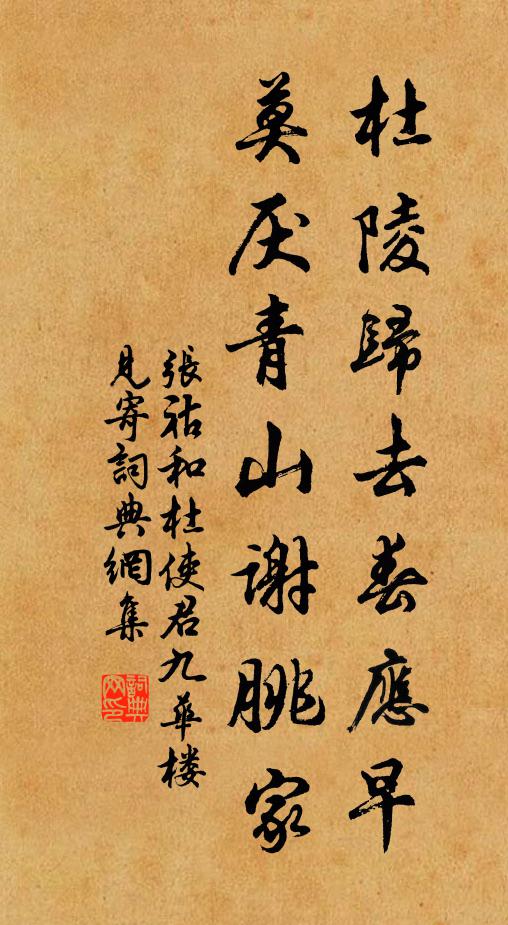 杜陵歸去春應早
莫厌青山謝朓家
張祜和杜使君九華楼
見寄詞典網集
詞典網印